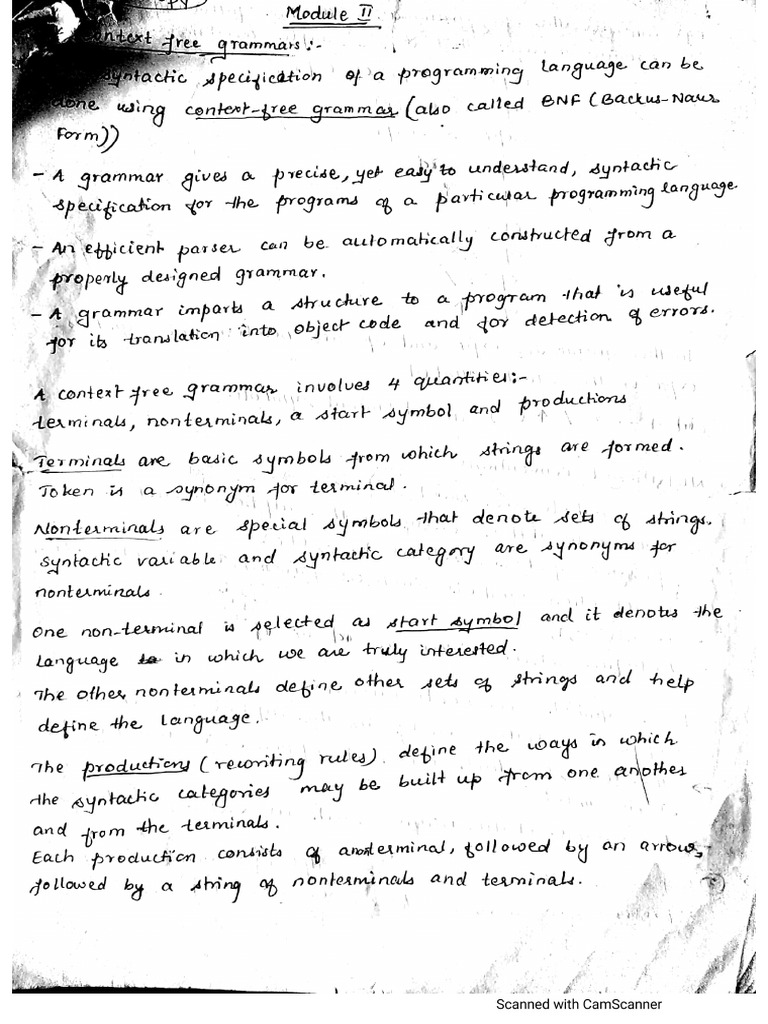 Module II
Context free grammars:-
syntactic specification of a programming language can be
done using context-free grammar (also called BNF (Backus-Naur
Form))
- A grammar gives a precise, yet easy to understand, syntactic
specification for the programs of a particular programming language
- An efficient parser can be automatically constructed from a
properly designed grammar.
- A grammar imparts a structure to a program that is useful
for its translation into object code and for detection of errors.
A context free grammar involves 4 quantities:-
terminals, nonterminals, a start symbol and productions
Terminals are basic symbols from which strings are formed.
Token is a synonym for terminal.
Nonterminals are special symbols that denote sets of strings.
syntactic variable and syntactic category are synonyms for
nonterminals.
One non-terminal is selected as start symbol and it denotes the
language in which we are truly interested.
The other nonterminals define other sets of strings and help
define the language.
The productions (rewriting rules) define the ways in which
the syntactic categories may be built up from one another
and from the terminals.
Each production consists of a nonterminal, followed by an arrow,
followed by a string of nonterminals and terminals.
Scanned with CamScanner